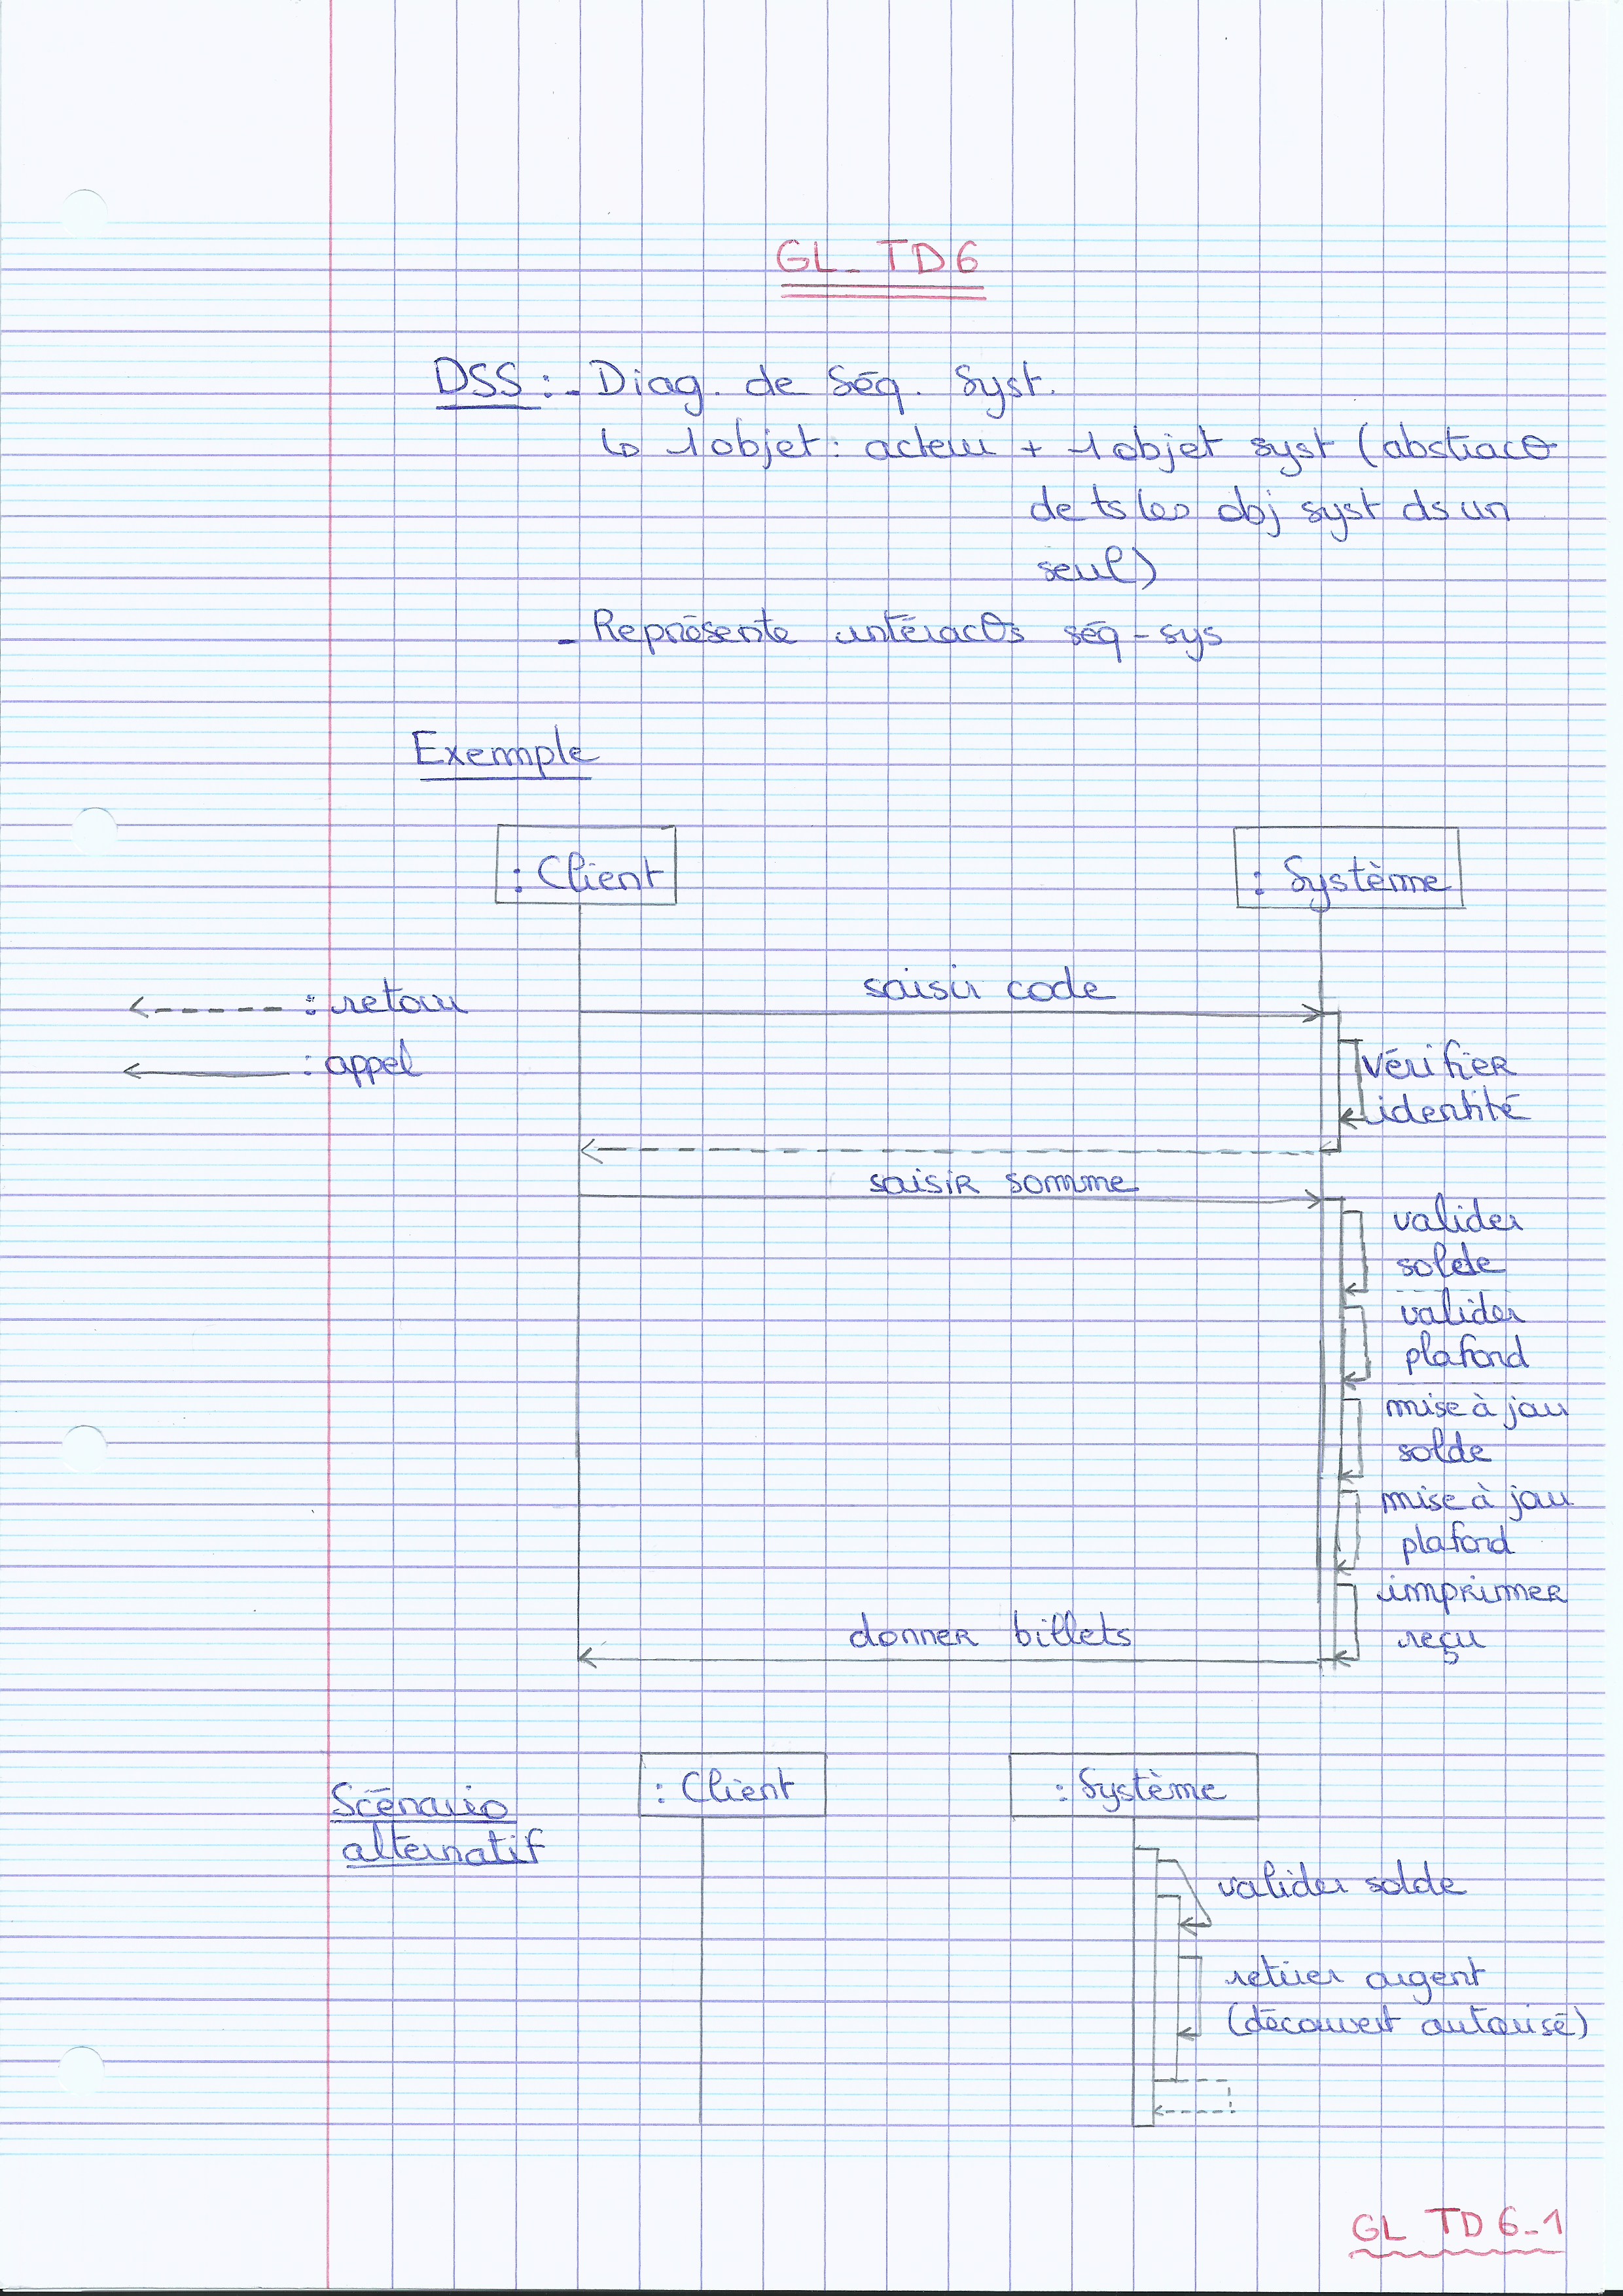 GL_TD6
DSS : - Diag. de Séq. Syst.
↳ 1 objet : acteur + 1 objet syst (abstracθ
de ts les obj syst ds un
seul)
- Représente intéracθs séq-sys
Exemple
: Client
: Système
: retour
: appel
saisir code
vérifier
identité
saisir somme
valider
solde
valider
plafond
mise à jour
solde
mise à jour
plafond
imprimer
reçu
donner billets
Scénario
alternatif
: Client
: Système
valider solde
retirer argent
(découvert autorisé)
GL_TD6_1